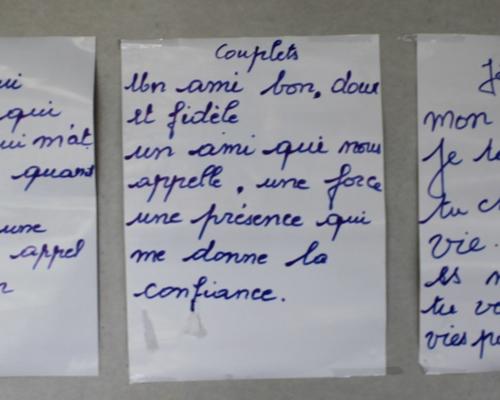 ui
qui
ui m'at
quand
une
appel
Couplets
Un ami bon, doux
et fidèle
un ami qui nous
appelle, une force
une présence qui
me donne la
confiance.
mon
Je
tu
vie.
tu